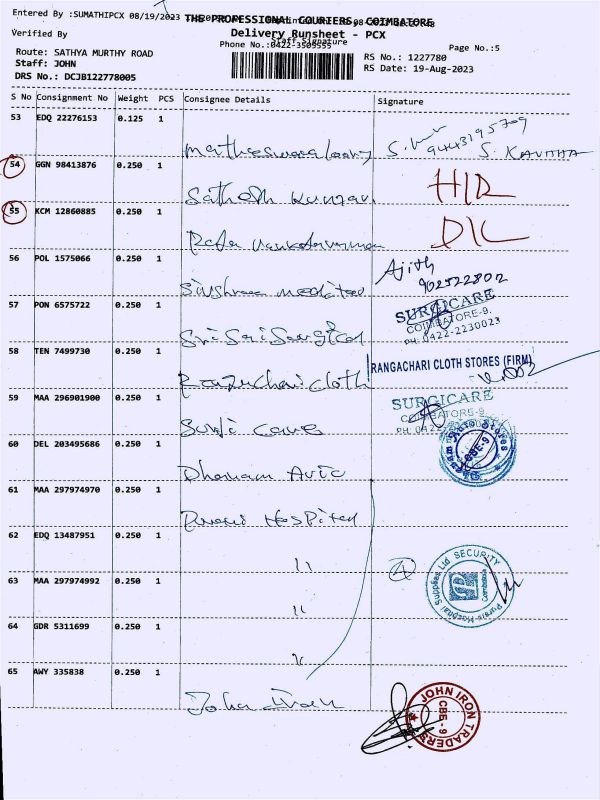 Entered By :SUMATHIPCX 08/19/2023
THE PROFESSIONAL COURIERS, COIMBATORE
Verified By
Delivery Runsheet - PCX
Staff Signature
Phone No.:0422-3505555
Page No.:5
Route: SATHYA MURTHY ROAD
RS No.: 1227780
Staff: JOHN
RS Date: 19-Aug-2023
DRS No.: DCJB122778005
S No Consignment No Weight PCS Consignee Details Signature
53 EDQ 22276153 0.125 1
S. KAVITHA
54 GGN 98413876 0.250 1
Sathesh Kumar
55 KCM 12860885 0.250 1
D/L
56 POL 1575066 0.250 1
Ajith
57 PON 6575722 0.250 1
Sri Sai Surgical
SURGICARE
COIMBATORE-9.
PH: 0422-2230023
58 TEN 7499730 0.250 1
Rangachari cloth
RANGACHARI CLOTH STORES (FIRM)
59 MAA 296901900 0.250 1
Surgi care
SURGICARE
60 DEL 203495686 0.250 1
CBE-9
61 MAA 297974970 0.250 1
Hospital
62 EDQ 13487951 0.250 1
"
4
Pursiv Hospital Supplies Ltd SECURITY
Coimbatore
63 MAA 297974992 0.250 1
"
64 GDR 5311699 0.250 1
"
65 AWY 335838 0.250 1
John Iron
JOHN IRON TRADERS
CBE - 9